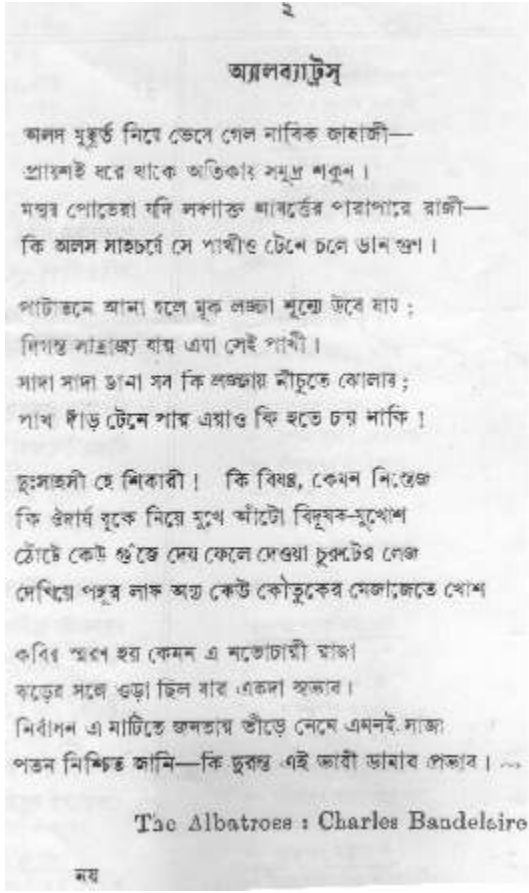 ২
অ্যালব্যাট্রস্
অলস মুহূর্ত নিয়ে ভেসে গেল নাবিক জাহাজী—
প্রায়শই ধরে থাকে অতিকায় সমুদ্র শকুন।
মন্থর পোতেরা যদি লবণাক্ত আবর্ত্তের পারাপারে রাজী—
কি অলস সাহচর্যে সে পাখীও টেনে চলে ডান গুণ।
পাটাতনে আনা হলে মূক লজ্জা শূন্যে উবে যায়;
দিগন্ত সাম্রাজ্য যার এরা সেই পাখী।
সাদা সাদা ডানা সব কি লজ্জায় নীচুতে ঝোলায়;
পাখা দাঁড় টেনে পার এরাও কি হতে চায় নাকি!
দুঃসাহসী হে শিকারী! কি বিষণ্ণ, কেমন নিস্তেজ
কি ঔদার্য বুকে নিয়ে মুখে আঁটো বিদূষক-মুখোশ
ঠোঁটে কেউ গুঁজে দেয় ফেলে দেওয়া চুরুটের লেজ
দেখিয়ে পঙ্গুর লাফ অন্য কেউ কৌতুকের মেজাজেতে খোশ
কবির স্মরণ হয় কেমন এ নভোচারী রাজা
ঝড়ের সঙ্গে ওড়া ছিল যার একদা স্বভাব।
নির্বাসন এ মাটিতে জনতার ভীঁড়ে নেমে এমনই সাজা
পতন নিশ্চিত জানি—কি দুরন্ত এই ভারী ডানার প্রভাব।
The Albatross : Charles Bandelaire
নয়